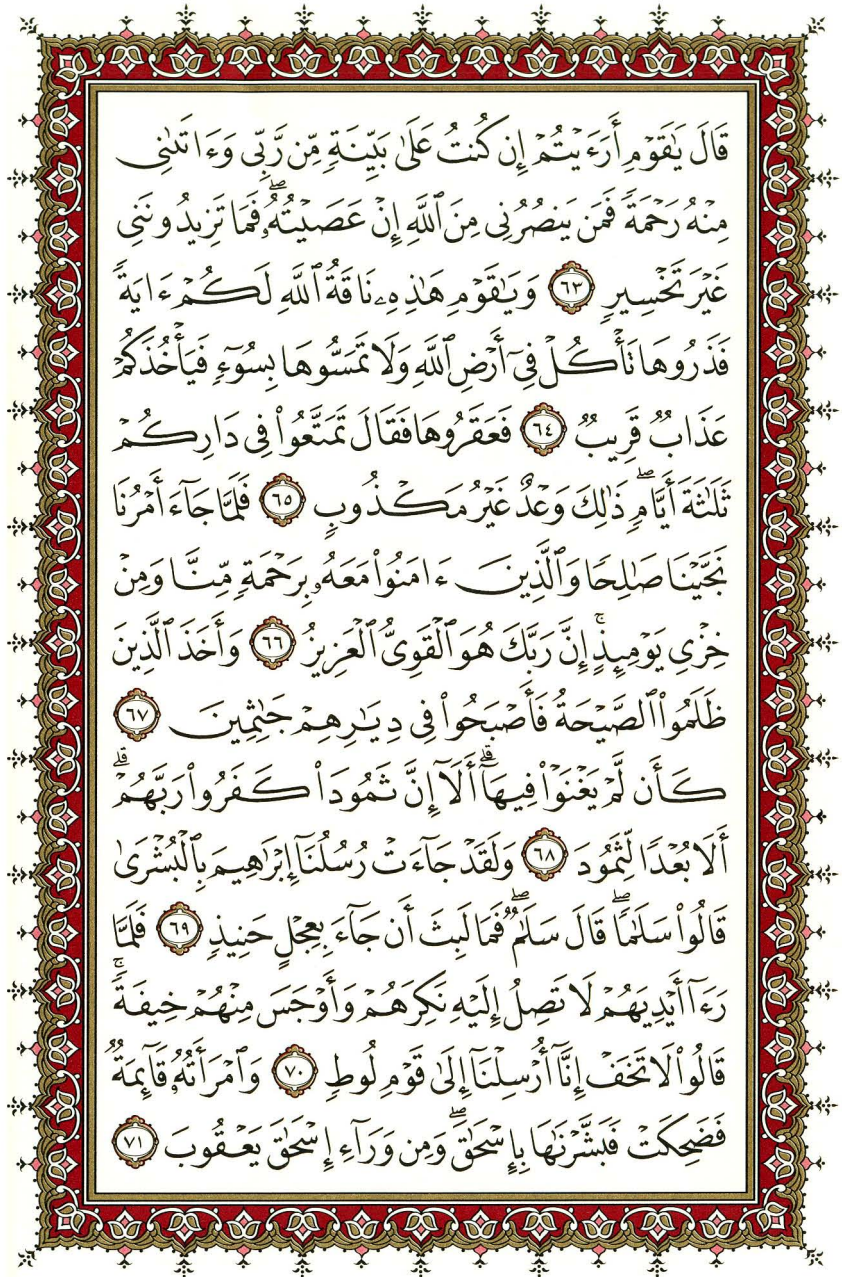 قَالَ يَٰقَوۡمِ أَرَءَيۡتُمۡ إِن كُنتُ عَلَىٰ بَيِّنَةٖ مِّن رَّبِّي وَءَاتَىٰنِي
مِنۡهُ رَحۡمَةٗ فَمَن يَنصُرُنِي مِنَ ٱللَّهِ إِنۡ عَصَيۡتُهُۥۖ فَمَا تَزِيدُونَنِي
غَيۡرَ تَخۡسِيرٖ ٦٣ وَيَٰقَوۡمِ هَٰذِهِۦ نَاقَةُ ٱللَّهِ لَكُمۡ ءَايَةٗۖ
فَذَرُوهَا تَأۡكُلۡ فِيٓ أَرۡضِ ٱللَّهِ وَلَا تَمَسُّوهَا بِسُوٓءٖ فَيَأۡخُذَكُمۡ
عَذَابٞ قَرِيبٞ ٦٤ فَعَقَرُوهَا فَقَالَ تَمَتَّعُواْ فِي دَارِكُمۡ
ثَلَٰثَةَ أَيَّامٖۖ ذَٰلِكَ وَعۡدٌ غَيۡرُ مَكۡذُوبٖ ٦٥ فَلَمَّا جَآءَ أَمۡرُنَا
نَجَّيۡنَا صَٰلِحٗا وَٱلَّذِينَ ءَامَنُواْ مَعَهُۥ بِرَحۡمَةٖ مِّنَّا وَمِنۡ
خِزۡيِ يَوۡمِئِذٍۚ إِنَّ رَبَّكَ هُوَ ٱلۡقَوِيُّ ٱلۡعَزِيزُ ٦٦ وَأَخَذَ ٱلَّذِينَ
ظَلَمُواْ ٱلصَّيۡحَةُ فَأَصۡبَحُواْ فِي دِيَٰرِهِمۡ جَٰثِمِينَ ٦٧
كَأَن لَّمۡ يَغۡنَوۡاْ فِيهَآۗ أَلَآ إِنَّ ثَمُودَاْ كَفَرُواْ رَبَّهُمۡۗ
أَلَا بُعۡدٗا لِّثَمُودَ ٦٨ وَلَقَدۡ جَآءَتۡ رُسُلُنَآ إِبۡرَٰهِيمَ بِٱلۡبُشۡرَىٰ
قَالُواْ سَلَٰمٗاۖ قَالَ سَلَٰمٞۖ فَمَا لَبِثَ أَن جَآءَ بِعِجۡلٍ حَنِيذٖ ٦٩ فَلَمَّا
رَءَآ أَيۡدِيَهُمۡ لَا تَصِلُ إِلَيۡهِ نَكِرَهُمۡ وَأَوۡجَسَ مِنۡهُمۡ خِيفَةٗۚ
قَالُواْ لَا تَخَفۡ إِنَّآ أُرۡسِلۡنَآ إِلَىٰ قَوۡمِ لُوطٖ ٧٠ وَٱمۡرَأَتُهُۥ قَآئِمَةٞ
فَضَحِكَتۡ فَبَشَّرۡنَٰهَا بِإِسۡحَٰقَۖ وَمِن وَرَآءِ إِسۡحَٰقَ يَعۡقُوبَ ٧١